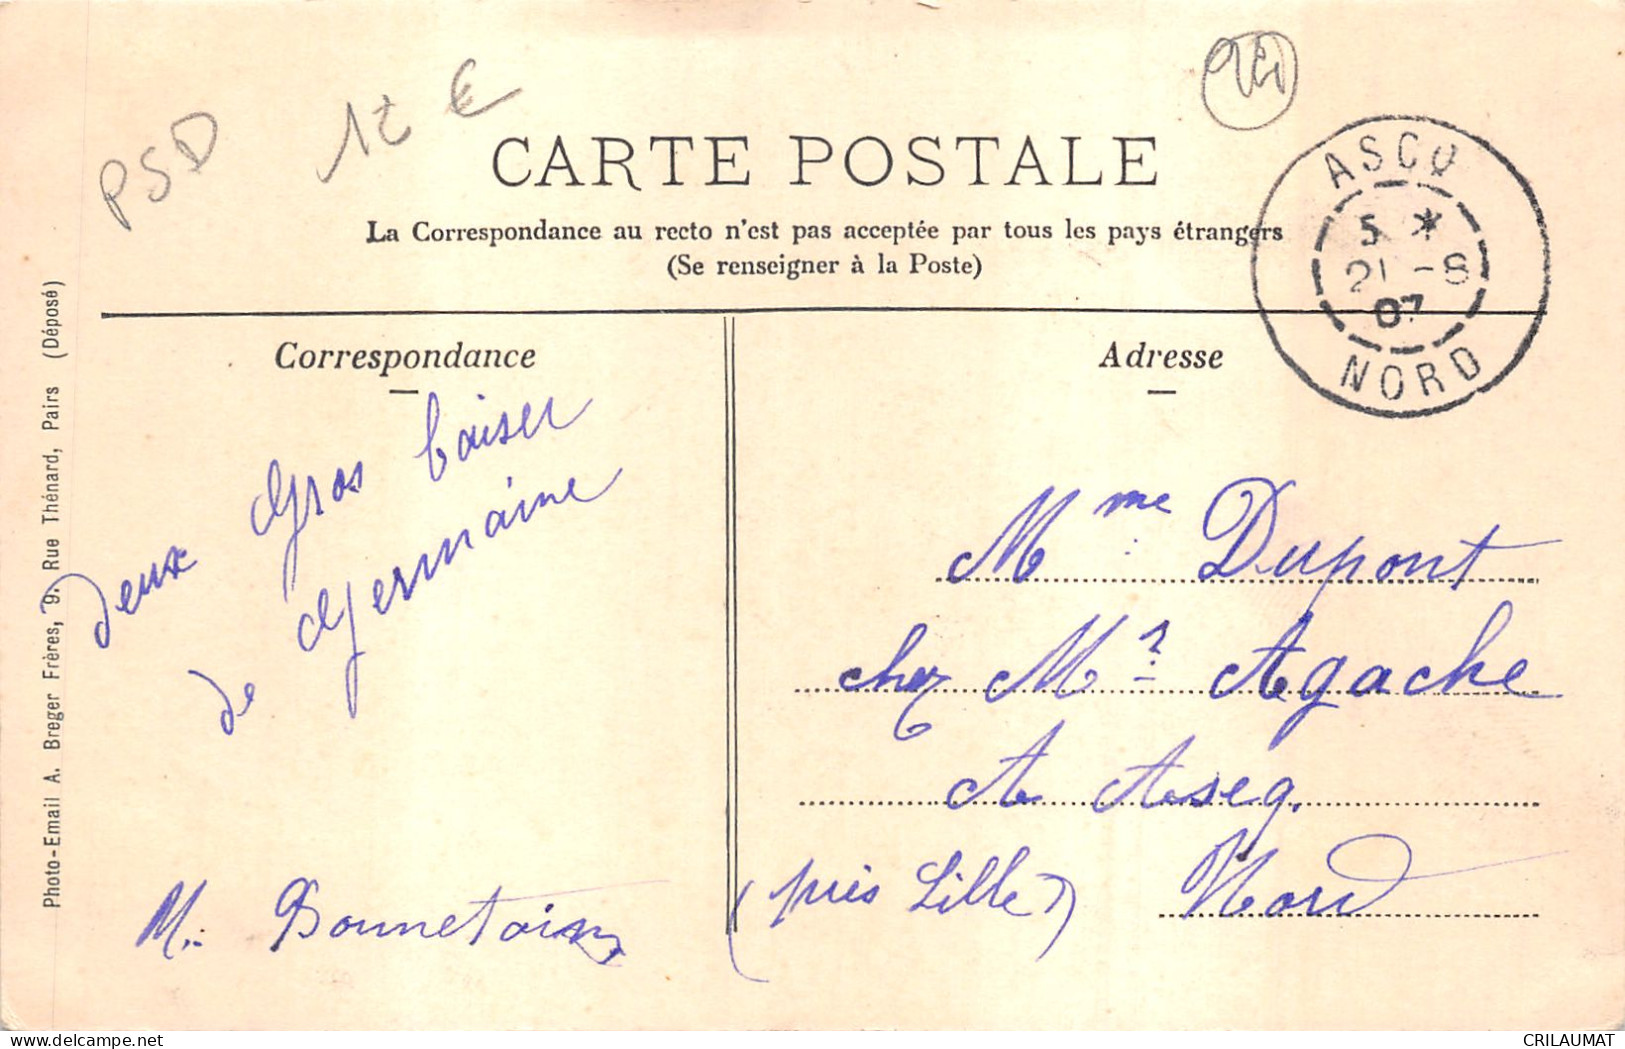 PSD
12 €
CARTE POSTALE
La Correspondance au recto n'est pas acceptée par tous les pays étrangers
(Se renseigner à la Poste)
ASCQ
5 *
21 -8
07
NORD
Correspondance
Adresse
deux Gros baiser
de Germaine
M. Bonnetain
Mme Dupont
chez Mr Agache
A Aseq.
(près Lille) Nord
Photo-Email A. Breger Frères, 9. Rue Thénard, Pairs (Déposé)
CRILAUMAT